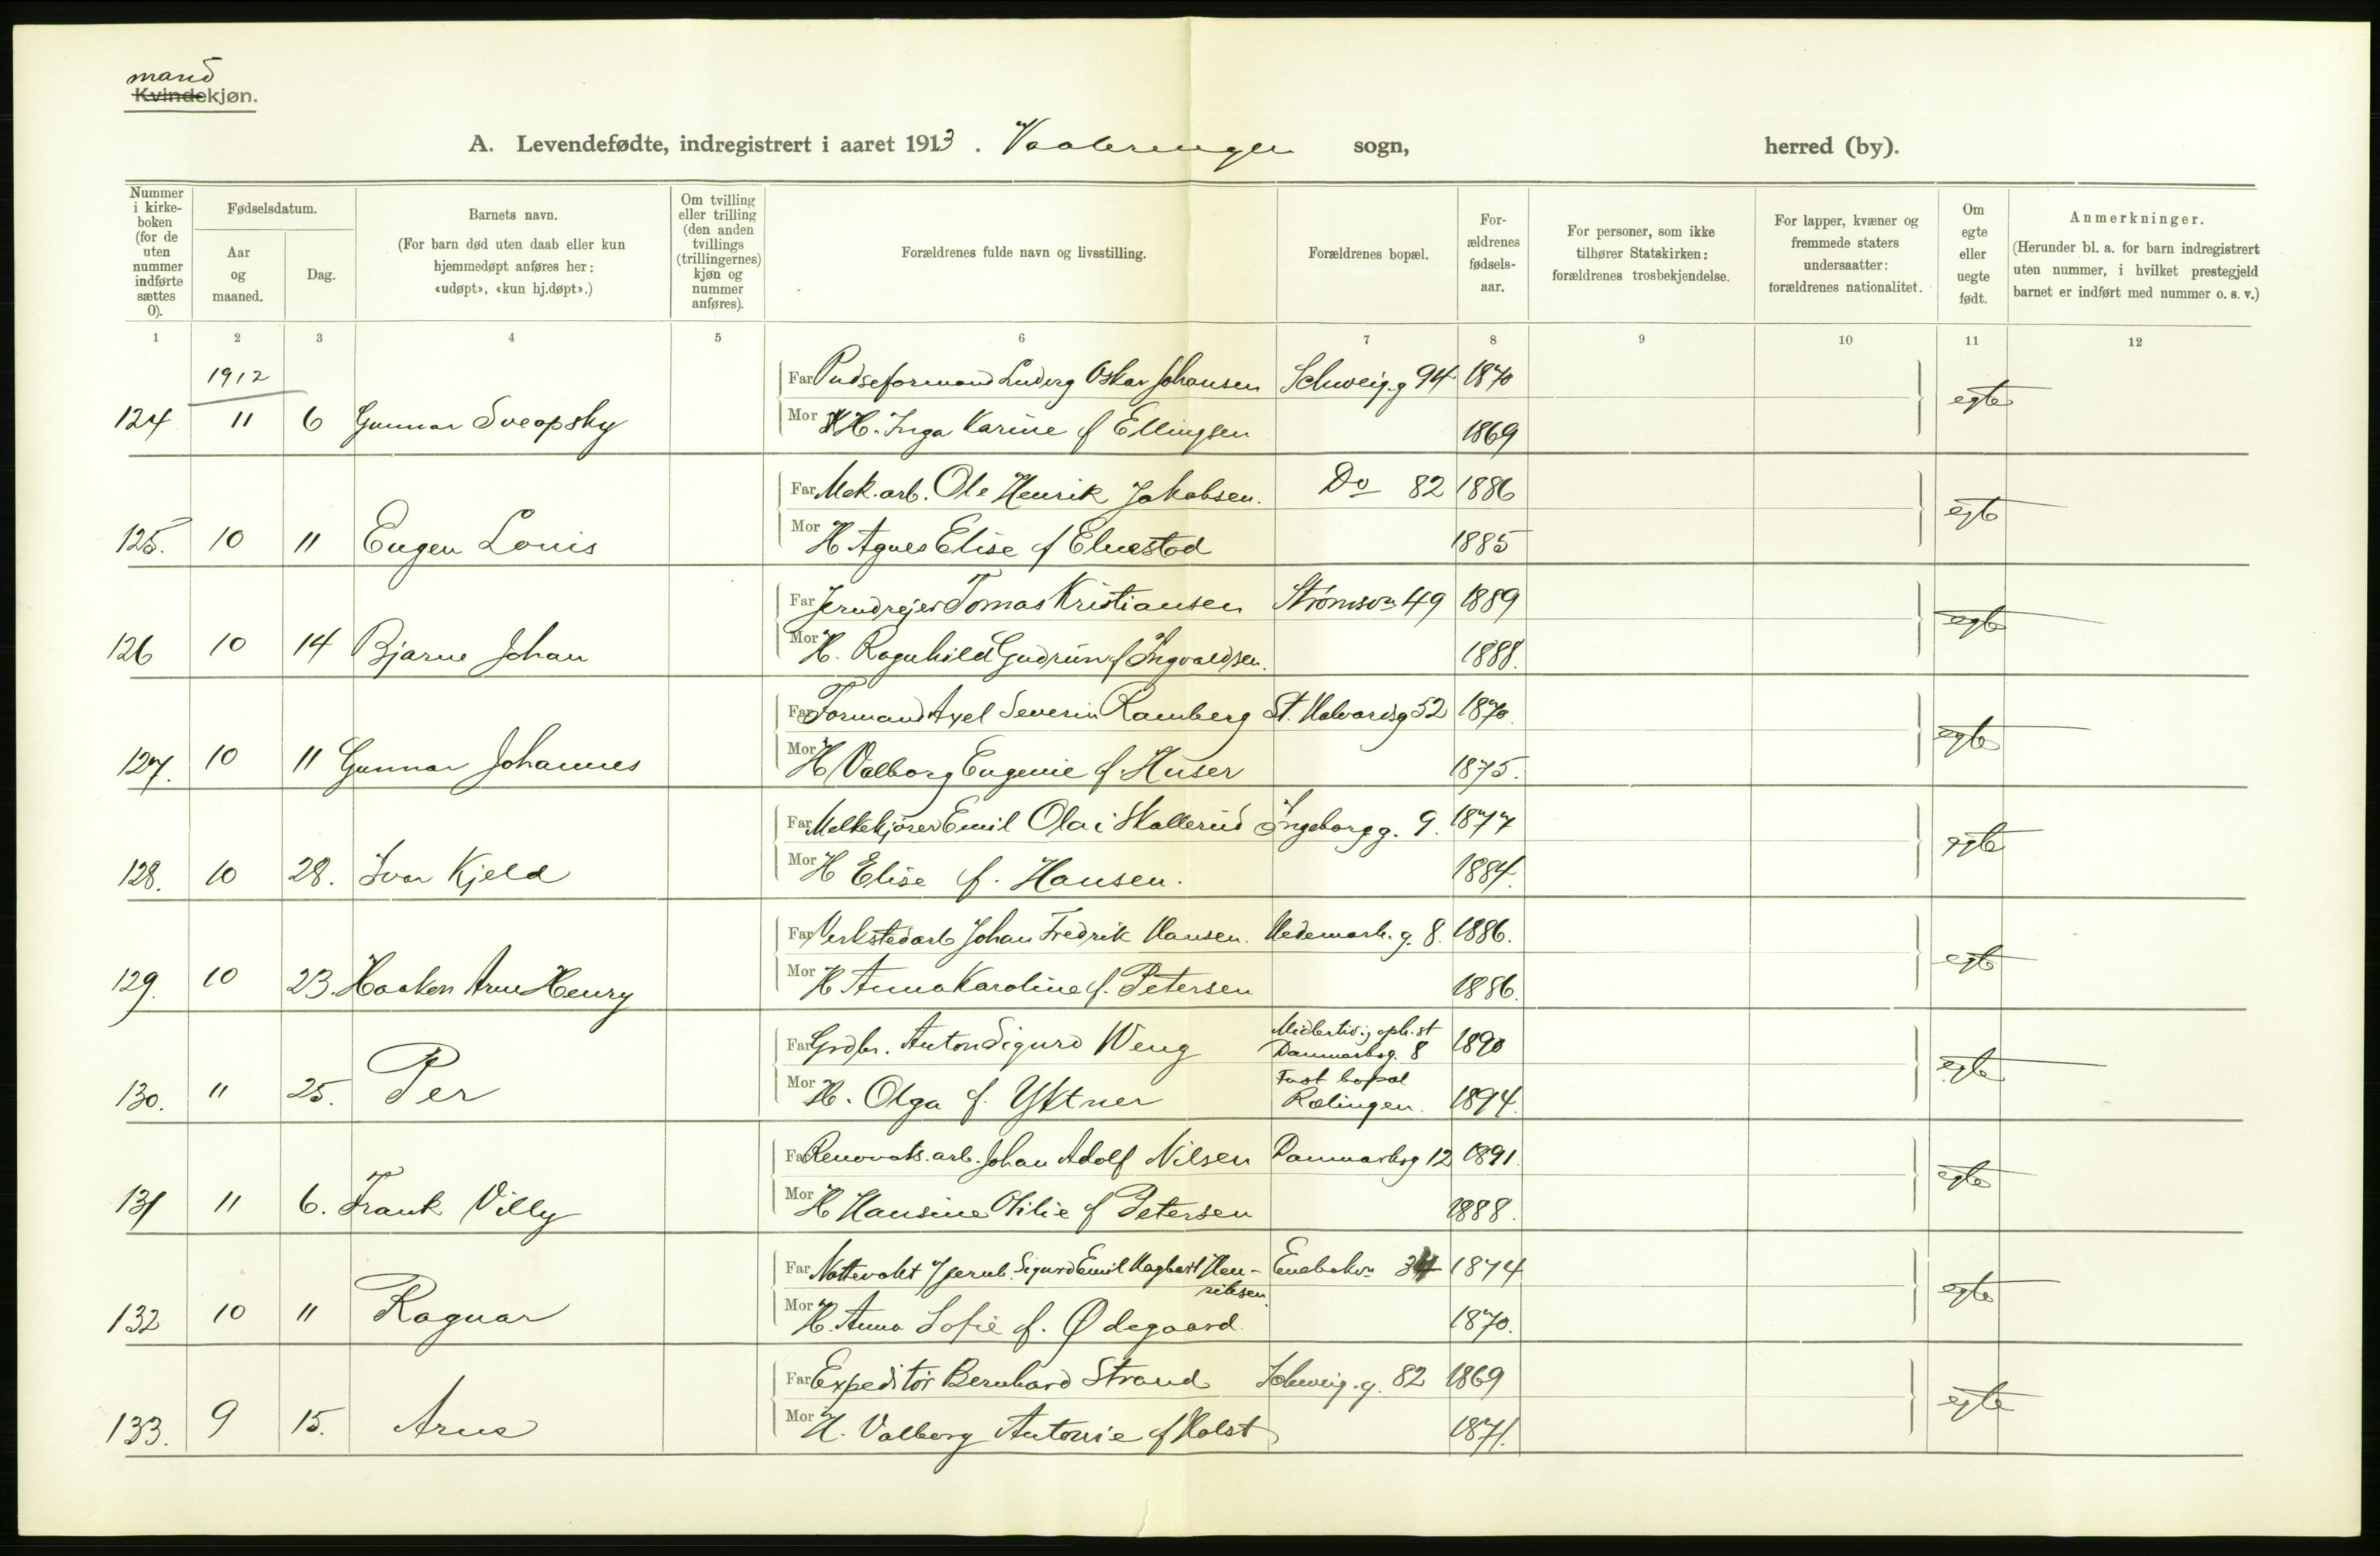 mand
Kvindekjøn.
A. Levendefødte, indregistrert i aaret 1913. Vaalerengen sogn, herred (by).
Nummer i kirke-boken (for de uten nummer indførte sættes 0).
Fødselsdatum.
Aar og maaned.
Dag.
Barnets navn.
(For barn død uten daab eller kun hjemmedøpt anføres her: «udøpt», «kun hj.døpt».)
Om tvilling eller trilling (den anden tvillings (trillingernes) kjøn og nummer anføres).
Forældrenes fulde navn og livsstilling.
Forældrenes bopæl.
For-ældrenes fødsels-aar.
For personer, som ikke tilhører Statskirken: forældrenes trosbekjendelse.
For lapper, kvæner og fremmede staters undersaatter: forældrenes nationalitet.
Om egte eller uegte født.
Anmerkninger.
(Herunder bl. a. for barn indregistrert uten nummer, i hvilket prestegjeld barnet er indført med nummer o. s. v.)
1 2 3 4 5 6 7 8 9 10 11 12
1912
Far Pudseformand Ludvig Oskar Johansen Schweig.g 94 1870
124 11 6 Gunnar Sveopsky Mor H. Inga Karine f Ellingsen 1869 egte
Far Mek. arb. Ole Henrik Jakobsen. Do 82 1886
125. 10 11 Eugen Louis Mor H Agnes Elise f Elvestad 1885 egte
Far Jerndrejer Tomas Kristiansen Strömsvn 49 1889
126 10 14 Bjarne Johan Mor H. Ragnhild Gudrun f Ingvaldsen. 1888. egte
Far Formand Axel Severin Ramberg St. Halvardsg 52 1870.
127. 10 11 Gunnar Johannes Mor H Valborg Eugenie f. Huser 1875. egte
Far Melkekjörer Emil Olai Skallerud Ingeborgg. 9. 1877
128. 10 28. Ivar Kjeld Mor H Elise f. Hansen. 1884. egte
Far Verkstedarb Johan Fredrik Hansen. Hedemark. g. 8. 1886.
129. 10 23. Haakon Arne Henry Mor H Anna Karoline f. Petersen 1886. egte
Far Grdbr. Anton Sigurd Weng Midlertidig oph. st Danmarksg. 8 1890
130. " 25. Per Mor H. Olga f. Yttner Fast bopæl Rælingen. 1894. egte
Far Renovats. arb. Johan Adolf Nilsen Danmarksg 12 1891.
131 11 6. Frank Villy Mor H Hansine Otilie f Petersen 1888. egte
Far Nattevakt v jernb. Sigurd Emil Hagbart Hen-riksen. Enebakvn 34 1874
132 10 11 Ragnar Mor H. Anna Sofie f. Ødegaard. 1870. egte
Far Expeditör Bernhard Strand Schweig. g. 82 1869
133. 9 15. Arne Mor H. Valborg Antonie f Holst 1871. egte